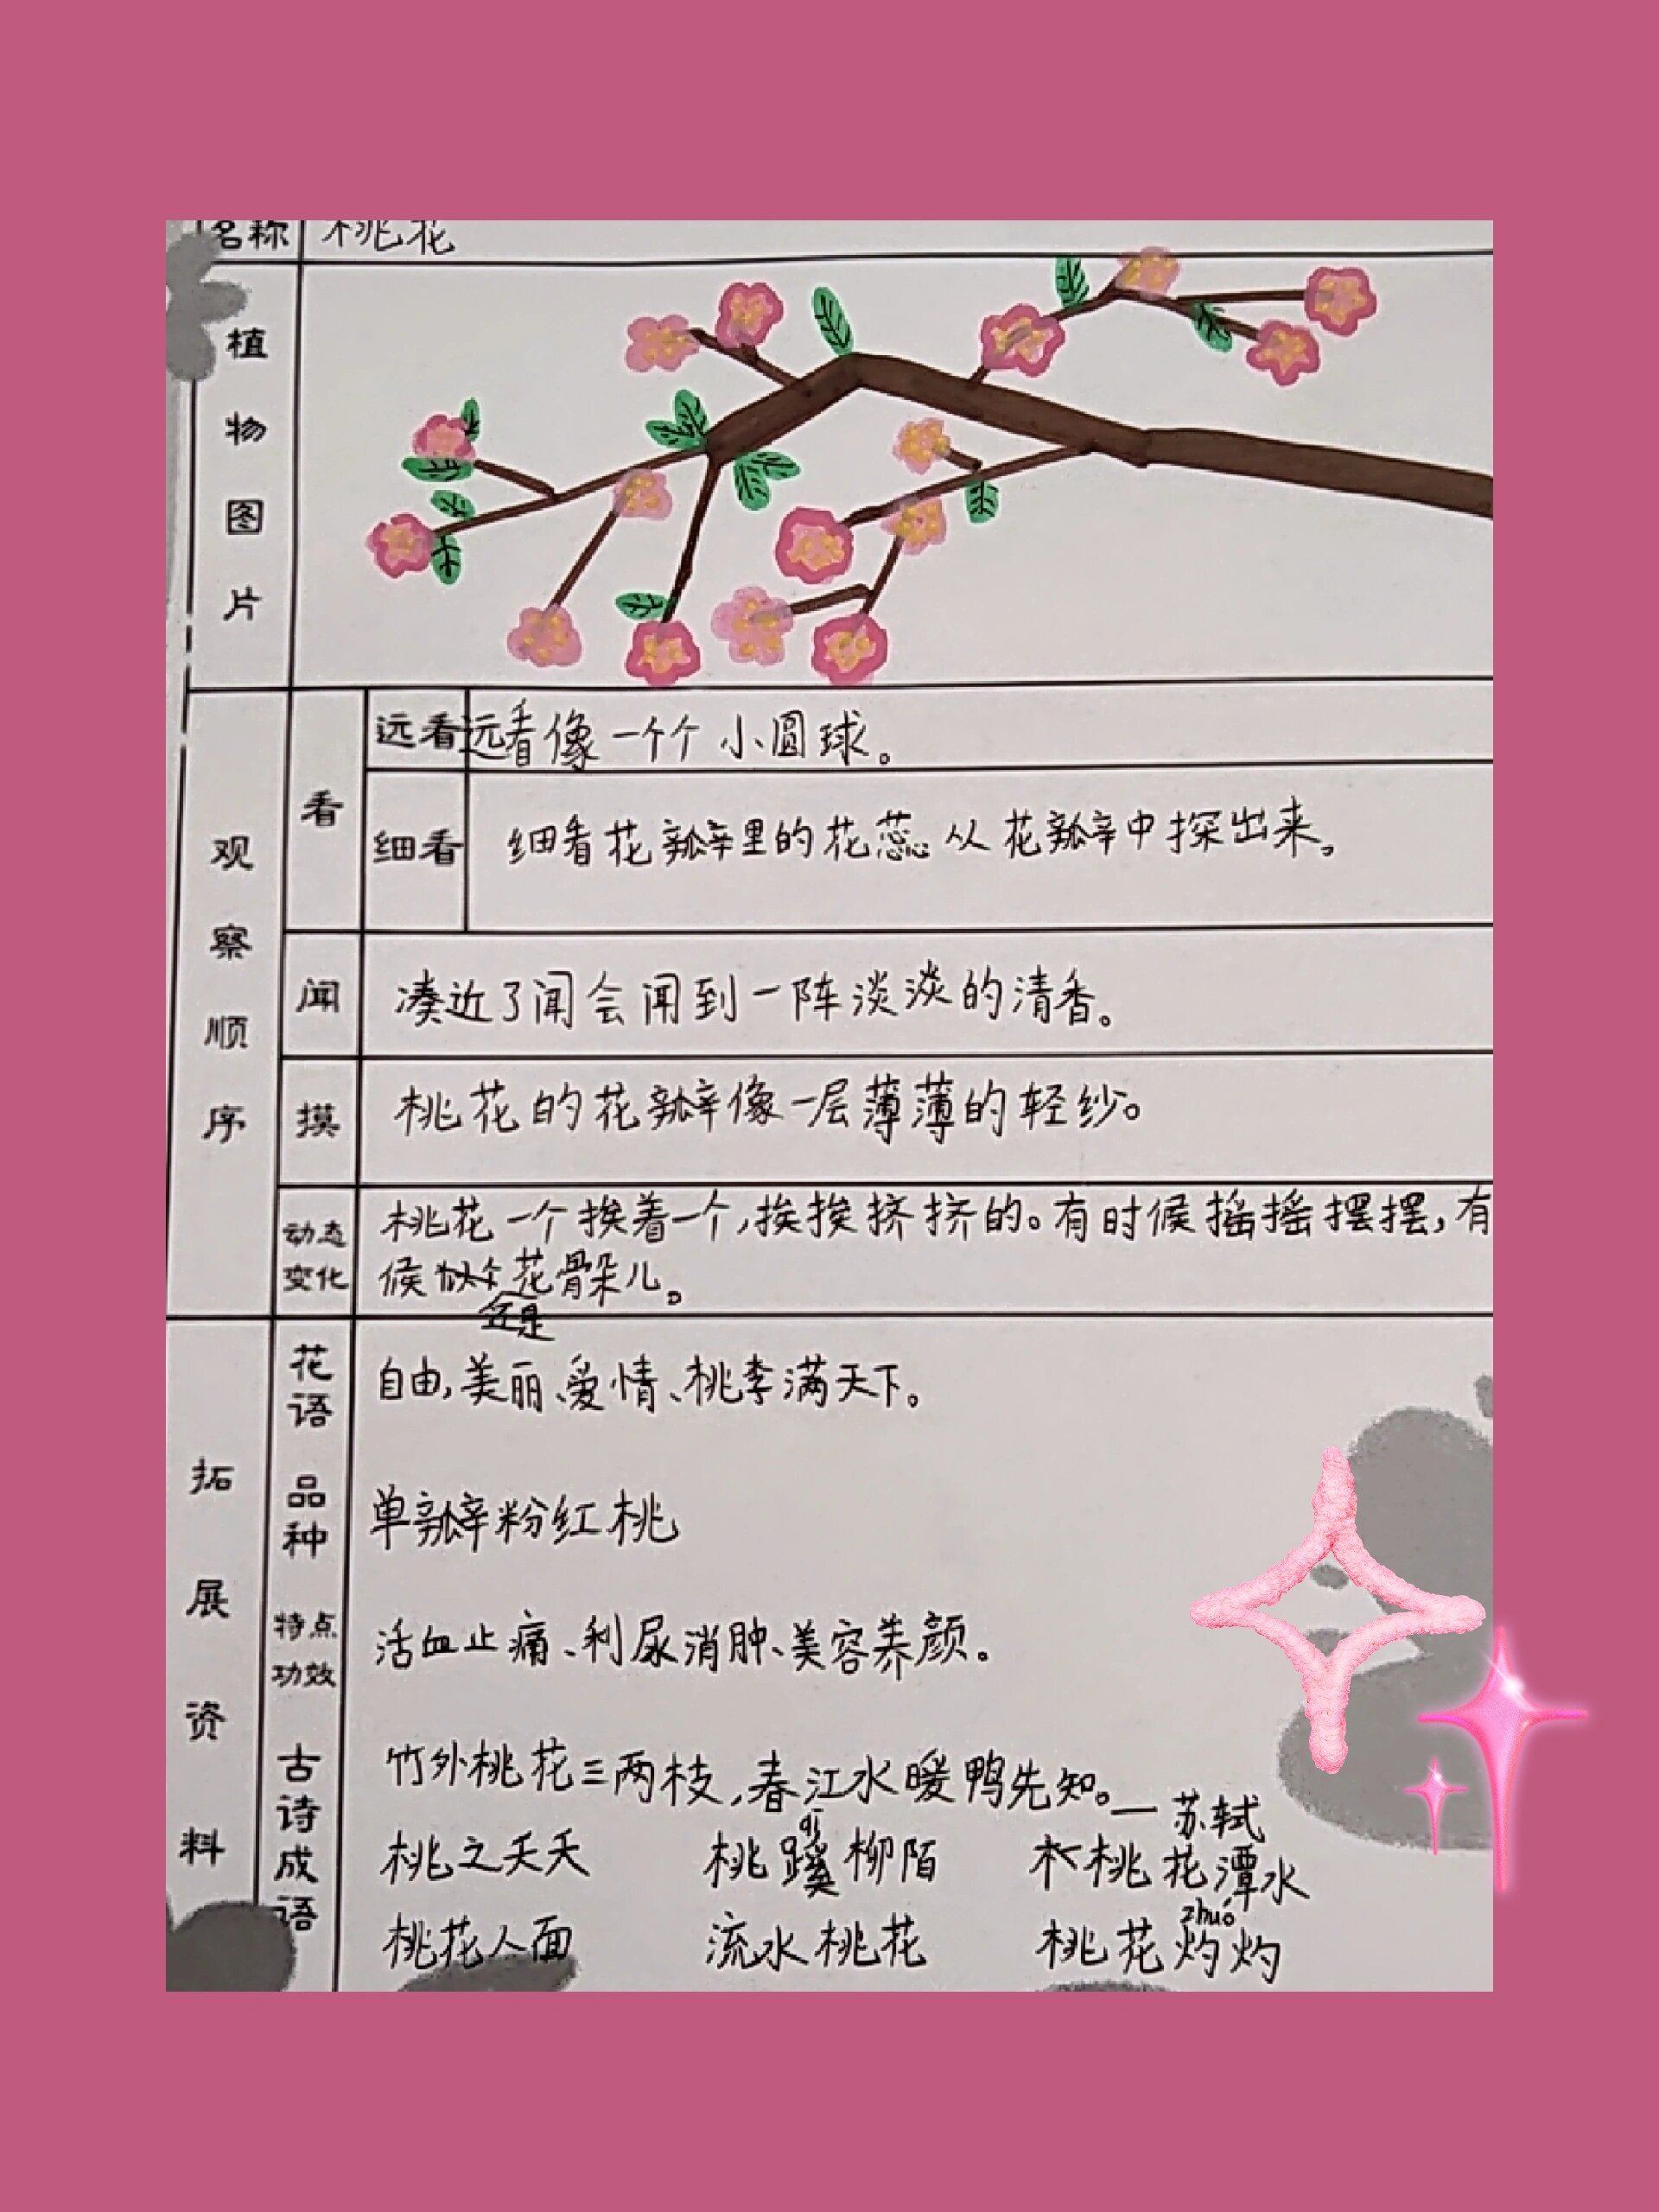 名称 桃花
植物图片
观察顺序
看
远看 远看像一个个小圆球。
细看 细看花瓣里的花蕊从花瓣中探出来。
闻 凑近了闻会闻到一阵淡淡的清香。
摸 桃花的花瓣像一层薄薄的轻纱。
动态变化 桃花一个挨着一个,挨挨挤挤的。有时候摇摇摆摆,有
候还是花骨朵儿。
拓展资料
花语 自由,美丽、爱情、桃李满天下。
品种 单瓣粉红桃
特点功效 活血止痛、利尿消肿、美容养颜。
古诗成语 竹外桃花三两枝,春江水暖鸭先知。—苏轼
桃之夭夭 桃蹊柳陌 桃花潭水
桃花人面 流水桃花 桃花灼灼
qī
zhuó